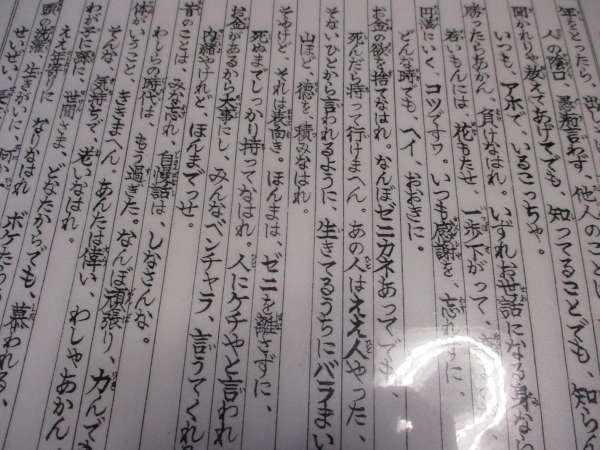 年をとったら、出し
人の陰口 愚痴言わず 他人のこと
聞かれりゃ 教えてあげてでも、知ってることでも、知らん
いつも、アホで、いるこっちゃ。
勝ったらあかん、負けなはれ。いずれお世話になる身なら
若いもんには 花もたせ、一歩下がって、
円満にいく、コツですワ。いつも感謝を、忘れずに、
どんな時でも、ヘイ、おおきに。
お金の欲を捨てなはれ。なんぼゼニカネあってでも、
死んだら持って行けまへん あの人はええ人やった、
そないひとから言われるように、生きてるうちにバラまい
山ほど 徳を、積みなはれ。
そやけど、それは表向き。ほんまは、ゼニを離さずに、
死ぬまでしっかり持ってなはれ。人にケチやと言われ
お金があるから大事にし、みんなベンチャラ、言うてくれ
内緒やけれど、ほんまでっせ。
昔のことは、みな忘れ、自慢話は、しなさんな。
わしらの時代は、もう過ぎた。なんぼ頑張り、力んでも
体がいうこと、ききまへん。あんたは偉い、わしゃあかん、
そんな気持ちで、老いなはれ。
わが子に孫に、世間さま、どなたからでも、慕われる、
ええ年寄りに なりなはれ
頭の洗濯 生きがいに、何か ボケ
せいぜい、